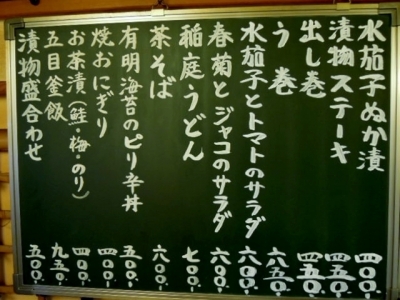 水茄子ぬか漬 四〇〇.
漬物ステーキ 四五〇.
出し巻 四五〇.
う巻 六五〇.
水茄子とトマトのサラダ 六〇〇.
春菊とジャコのサラダ 六〇〇.
稲庭うどん 七〇〇.
茶そば 六〇〇.
有明海苔のピリ辛丼 五〇〇.
焼おにぎり 四〇〇.
お茶漬(鮭・梅・のり) 四〇〇.
五目釜飯 九五〇.
漬物盛合わせ 五〇〇.